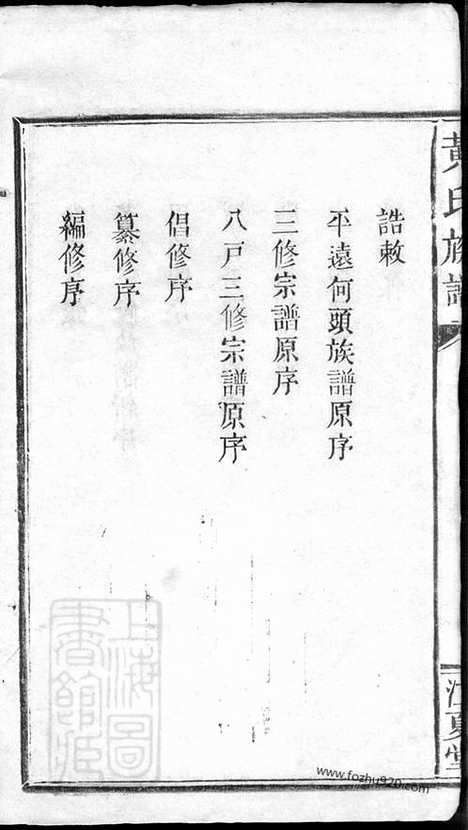 黃氏族譜
江夏堂
誥敕
平遠何頭族譜原序
三修宗譜原序
八戸三修宗譜原序
倡修序
纂修序
編修序
上海圖
書館藏
www.fozhu920.com